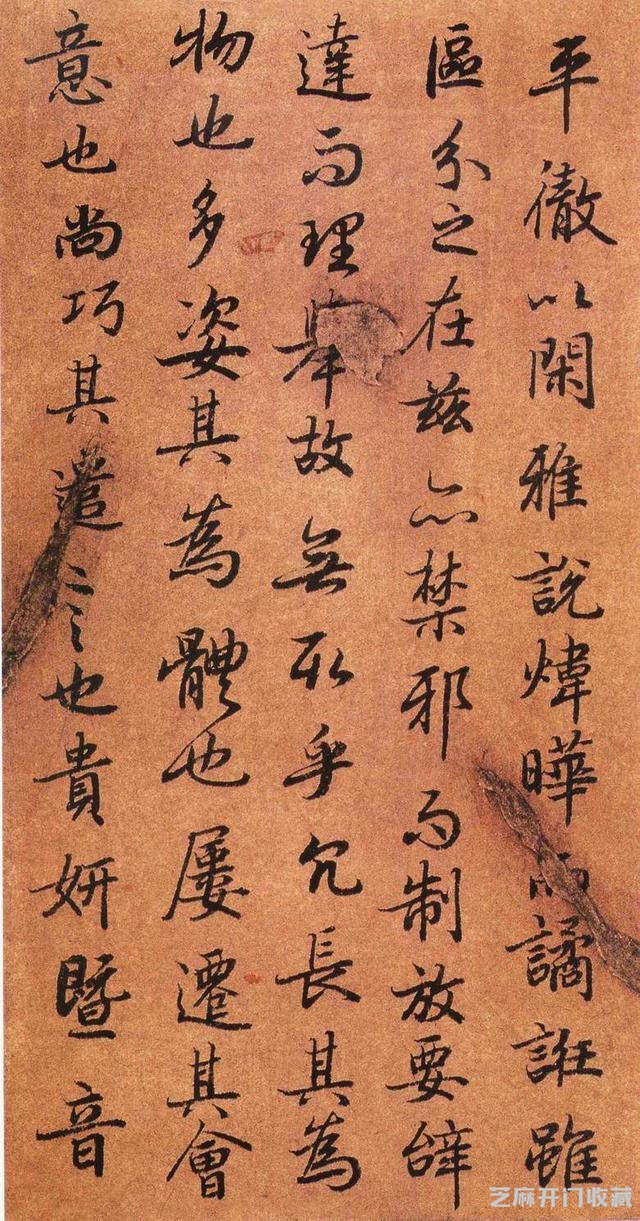 平徹以閑雅說煒曄而譎誑雖
區分之在茲亦禁邪而制放要辭
達而理舉故無取乎冗長其為
物也多姿其為體也屢遷其會
意也尚巧其遣言也貴妍暨音
芝麻开门收藏